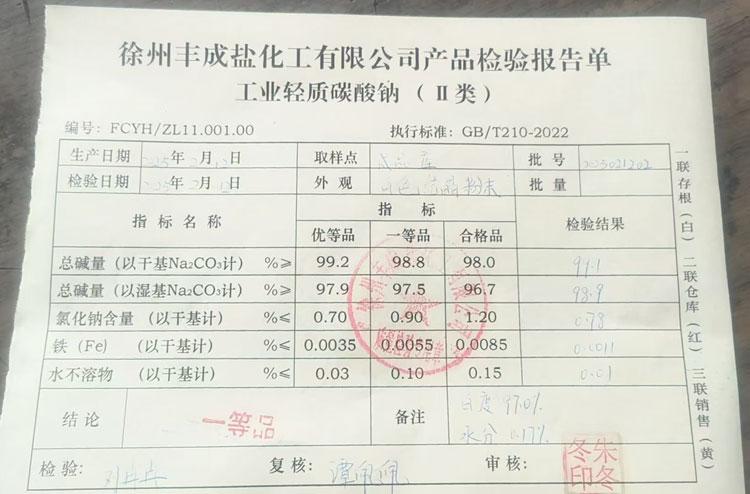 徐州丰成盐化工有限公司产品检验报告单
工业轻质碳酸钠（Ⅱ类）
编号：FCYH/ZL11.001.00 执行标准：GB/T210-2022
生产日期 2025年2月12日 取样点 成品库 批号
检验日期 2025年2月12日 外观 白色结晶粉末 批量
指标名称 指标 检验结果
优等品 一等品 合格品
总碱量（以干基Na₂CO₃计） %≥ 99.2 98.8 98.0 99.1
总碱量（以湿基Na₂CO₃计） %≥ 97.9 97.5 96.7 98.9
氯化钠含量（以干基计） %≤ 0.70 0.90 1.20 0.78
铁（Fe）（以干基计） %≤ 0.0035 0.0055 0.0085 0.0011
水不溶物（以干基计） %≤ 0.03 0.10 0.15 0.01
结论 一等品 备注 白度 97.0%
水分 0.17%
检验： 复核： 审核：
朱冬冬印
一联存根（白）二联仓库（红）三联销售（黄）